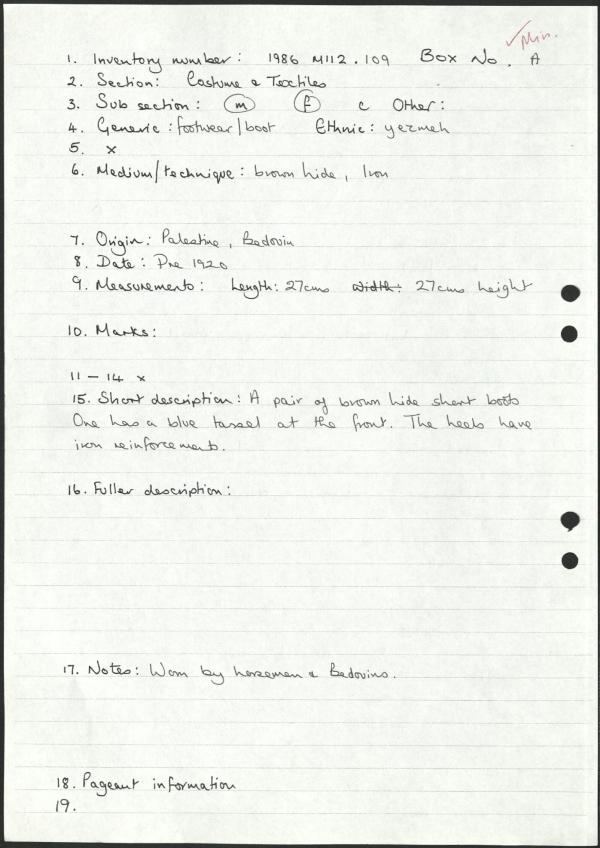 ✓Min.
1. Inventory number: 1986 M112.109 Box No. A
2. Section: Costume & Textiles
3. Sub section: m f c Other:
4. Generic: footwear/boot Ethnic: yezmeh
5. x
6. Medium/technique: brown hide, Iron
7. Origin: Palestine, Bedouin
8. Date: Pre 1920
9. Measurements: Length: 27cms width: 27cms height
10. Marks:
11 – 14 x
15. Short description: A pair of brown hide short boots
One has a blue tassel at the front. The heels have
iron reinforcements.
16. Fuller description:
17. Notes: Worn by horsemen & Bedouins.
18. Pageant information
19.